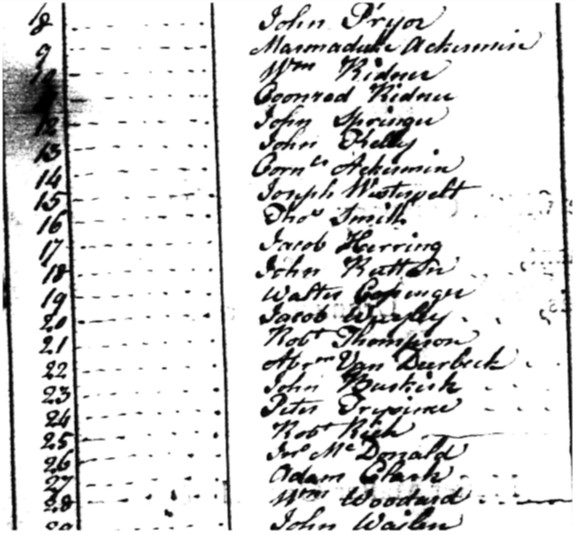 8 John Pryor
9 Marmaduke Ackermin
10 Wm Ridner
Coonrad Ridner
12 John Springer
13 John Kelly
14 Corns Ackermin
15 Joseph Westervelt
16 Thos Smith
17 Jacob Herring
18 John Rattan
19 Walter
20 Jacob
21 Robt Thompson
22 Abrm Van Deerbeck
23 John Buskirk
24 Peter
25 Robt Rich
26 Jno McDonald
27 Adam Clark
28 Wm Woodard
29 John